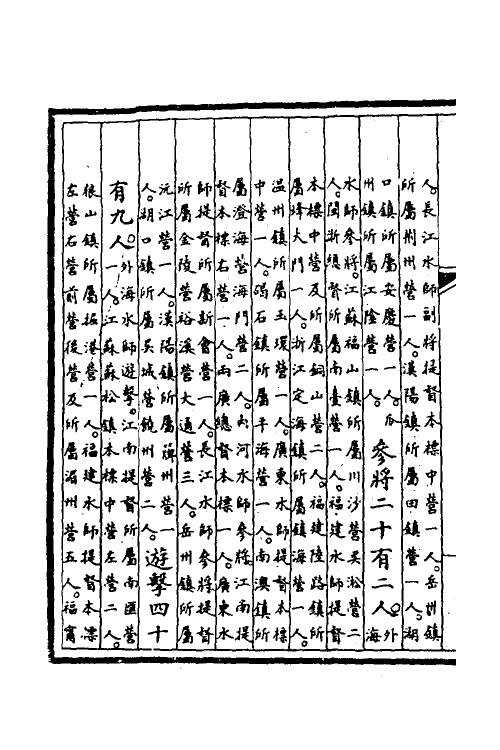 人。長江水師副將提督本標中營一人。岳州鎮
所屬荆州營一人。漢陽鎮所屬田鎮營一人。湖
口鎮所屬安慶營一人。瓜
州鎮所屬江陰營一人。
參將二十有二人。
外
海
水師參將。江蘇福山鎮所屬川沙營吳淞營二
人。閩浙總督所屬南臺營一人。福建水師提督
本標中營及所屬銅山營二人。福建陸路鎮所
屬烽火門一人。浙江定海鎮所屬鎮海營一人。
温州鎮所屬玉環營一人。廣東水師提督本標
中營一人。碣石鎮所屬平海營一人。南澳鎮所
屬澄海營海門營二人。內河水師參將江南提
督本標右營一人。兩廣總督本標一人。廣東水
師提督所屬新會營一人。長江水師參將提督
所屬金陵營裕溪營大通營三人。岳州鎮所屬
沅江營一人。漢陽鎮所屬蘄州營一
人。湖口鎮所屬吳城營饒州營二人。
遊擊四十
有九人。
外海水師遊擊。江南提督所屬南匯營
一人。江蘇蘇松鎮本標中營左營二人。
狼山鎮所屬掘港營一人。福建水師提督本標
左營右營前營後營及所屬湄州營五人。福寧